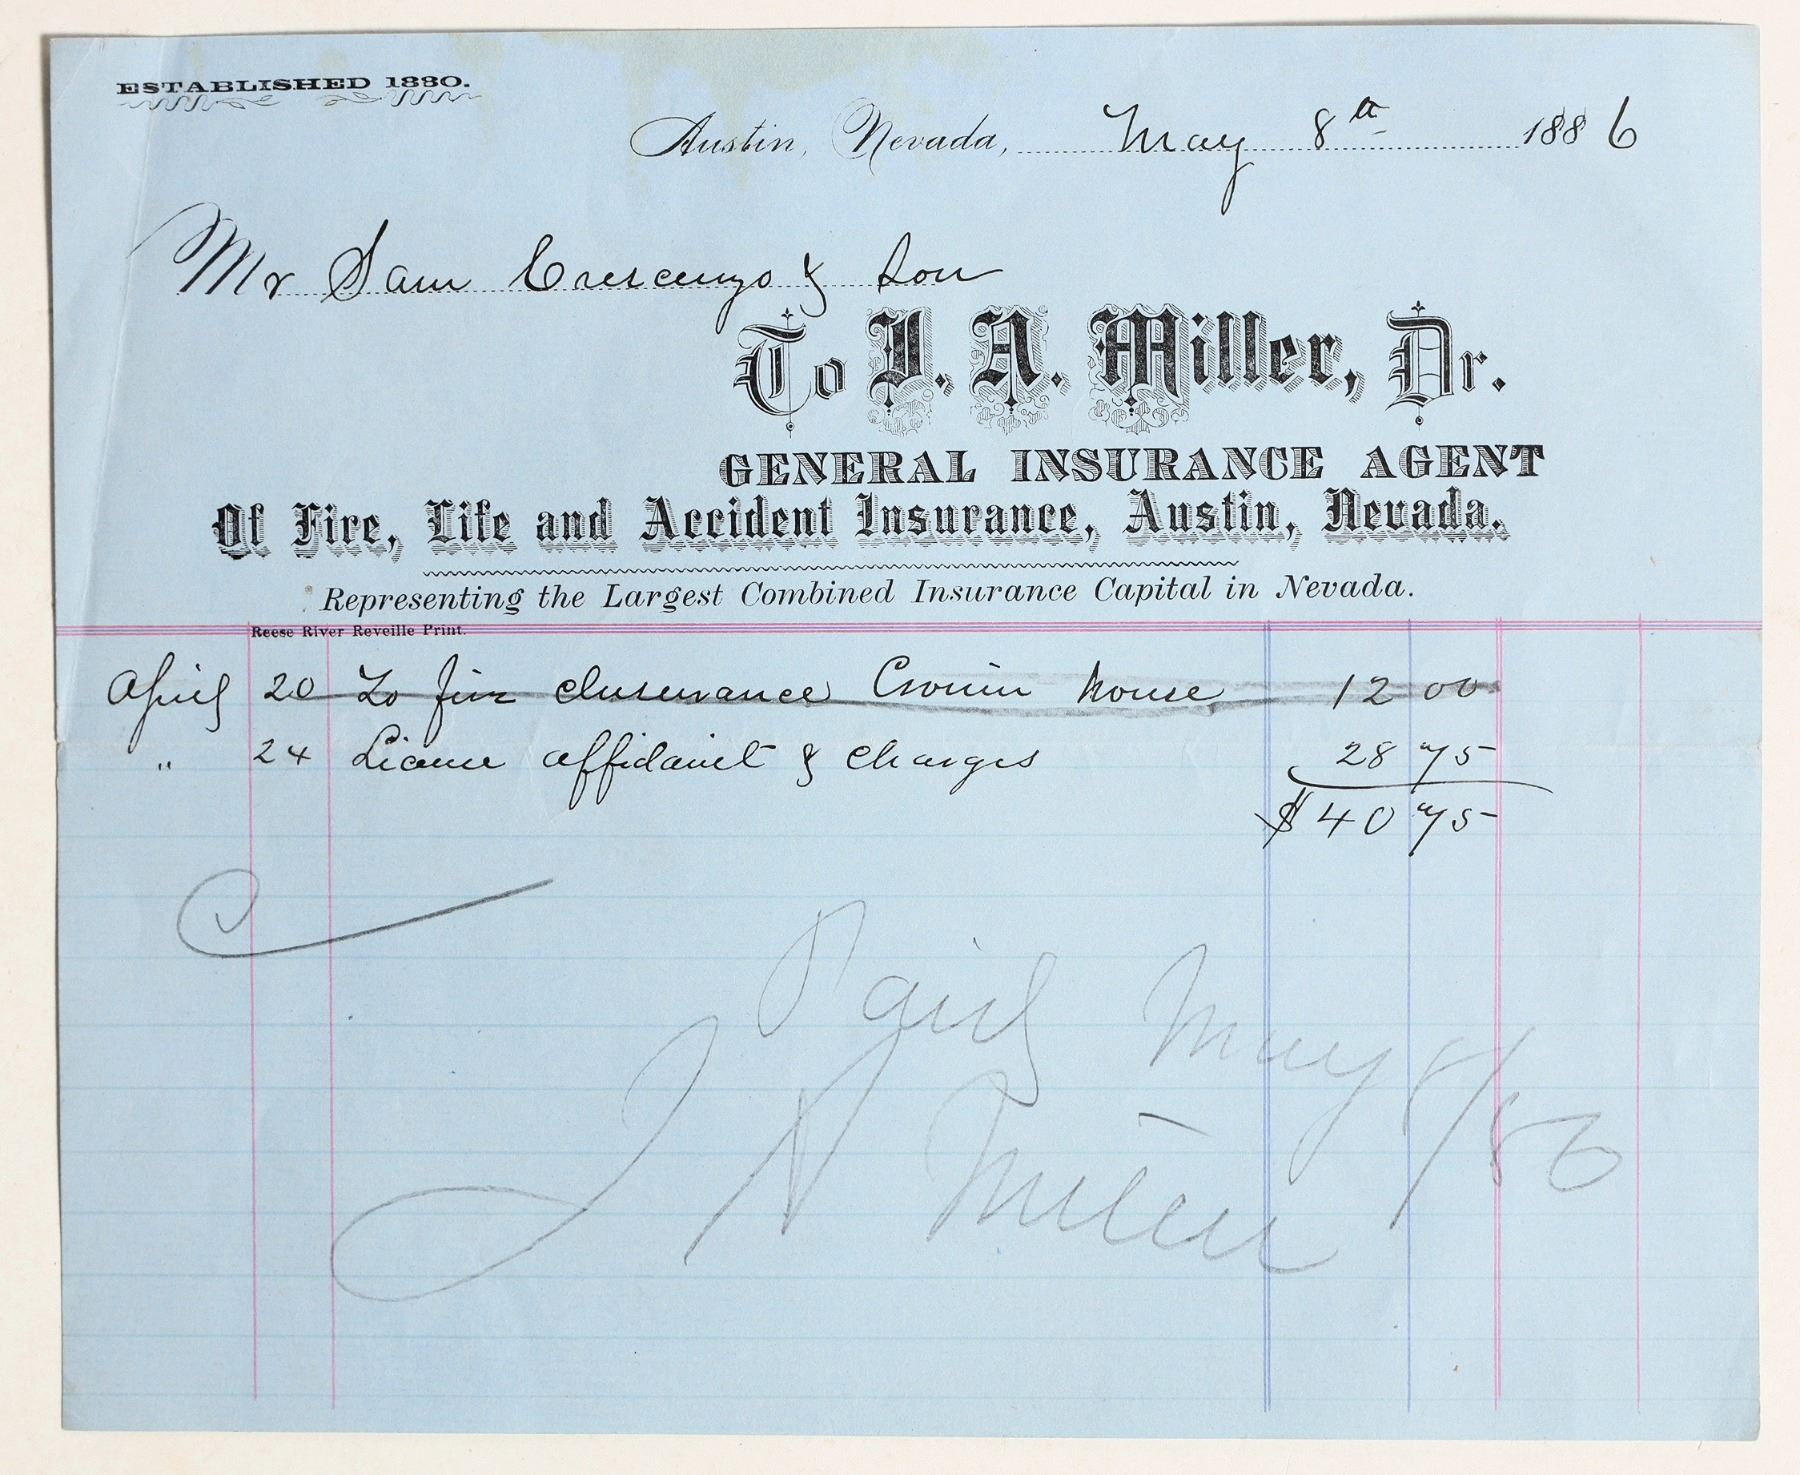 ESTABLISHED 1880.
Austin, Nevada, May 8th 1886
Mr Sam Crescenzo & Son
To J. A. Miller, Dr.
GENERAL INSURANCE AGENT
Of Fire, Life and Accident Insurance, Austin, Nevada.
Representing the Largest Combined Insurance Capital in Nevada.
Reese River Reveille Print.
April 20 To fire Insurance Cronin house 12 00
" 24 affidavit & charges 28 75
$ 40 75
Paid May 8/86
J A Miller